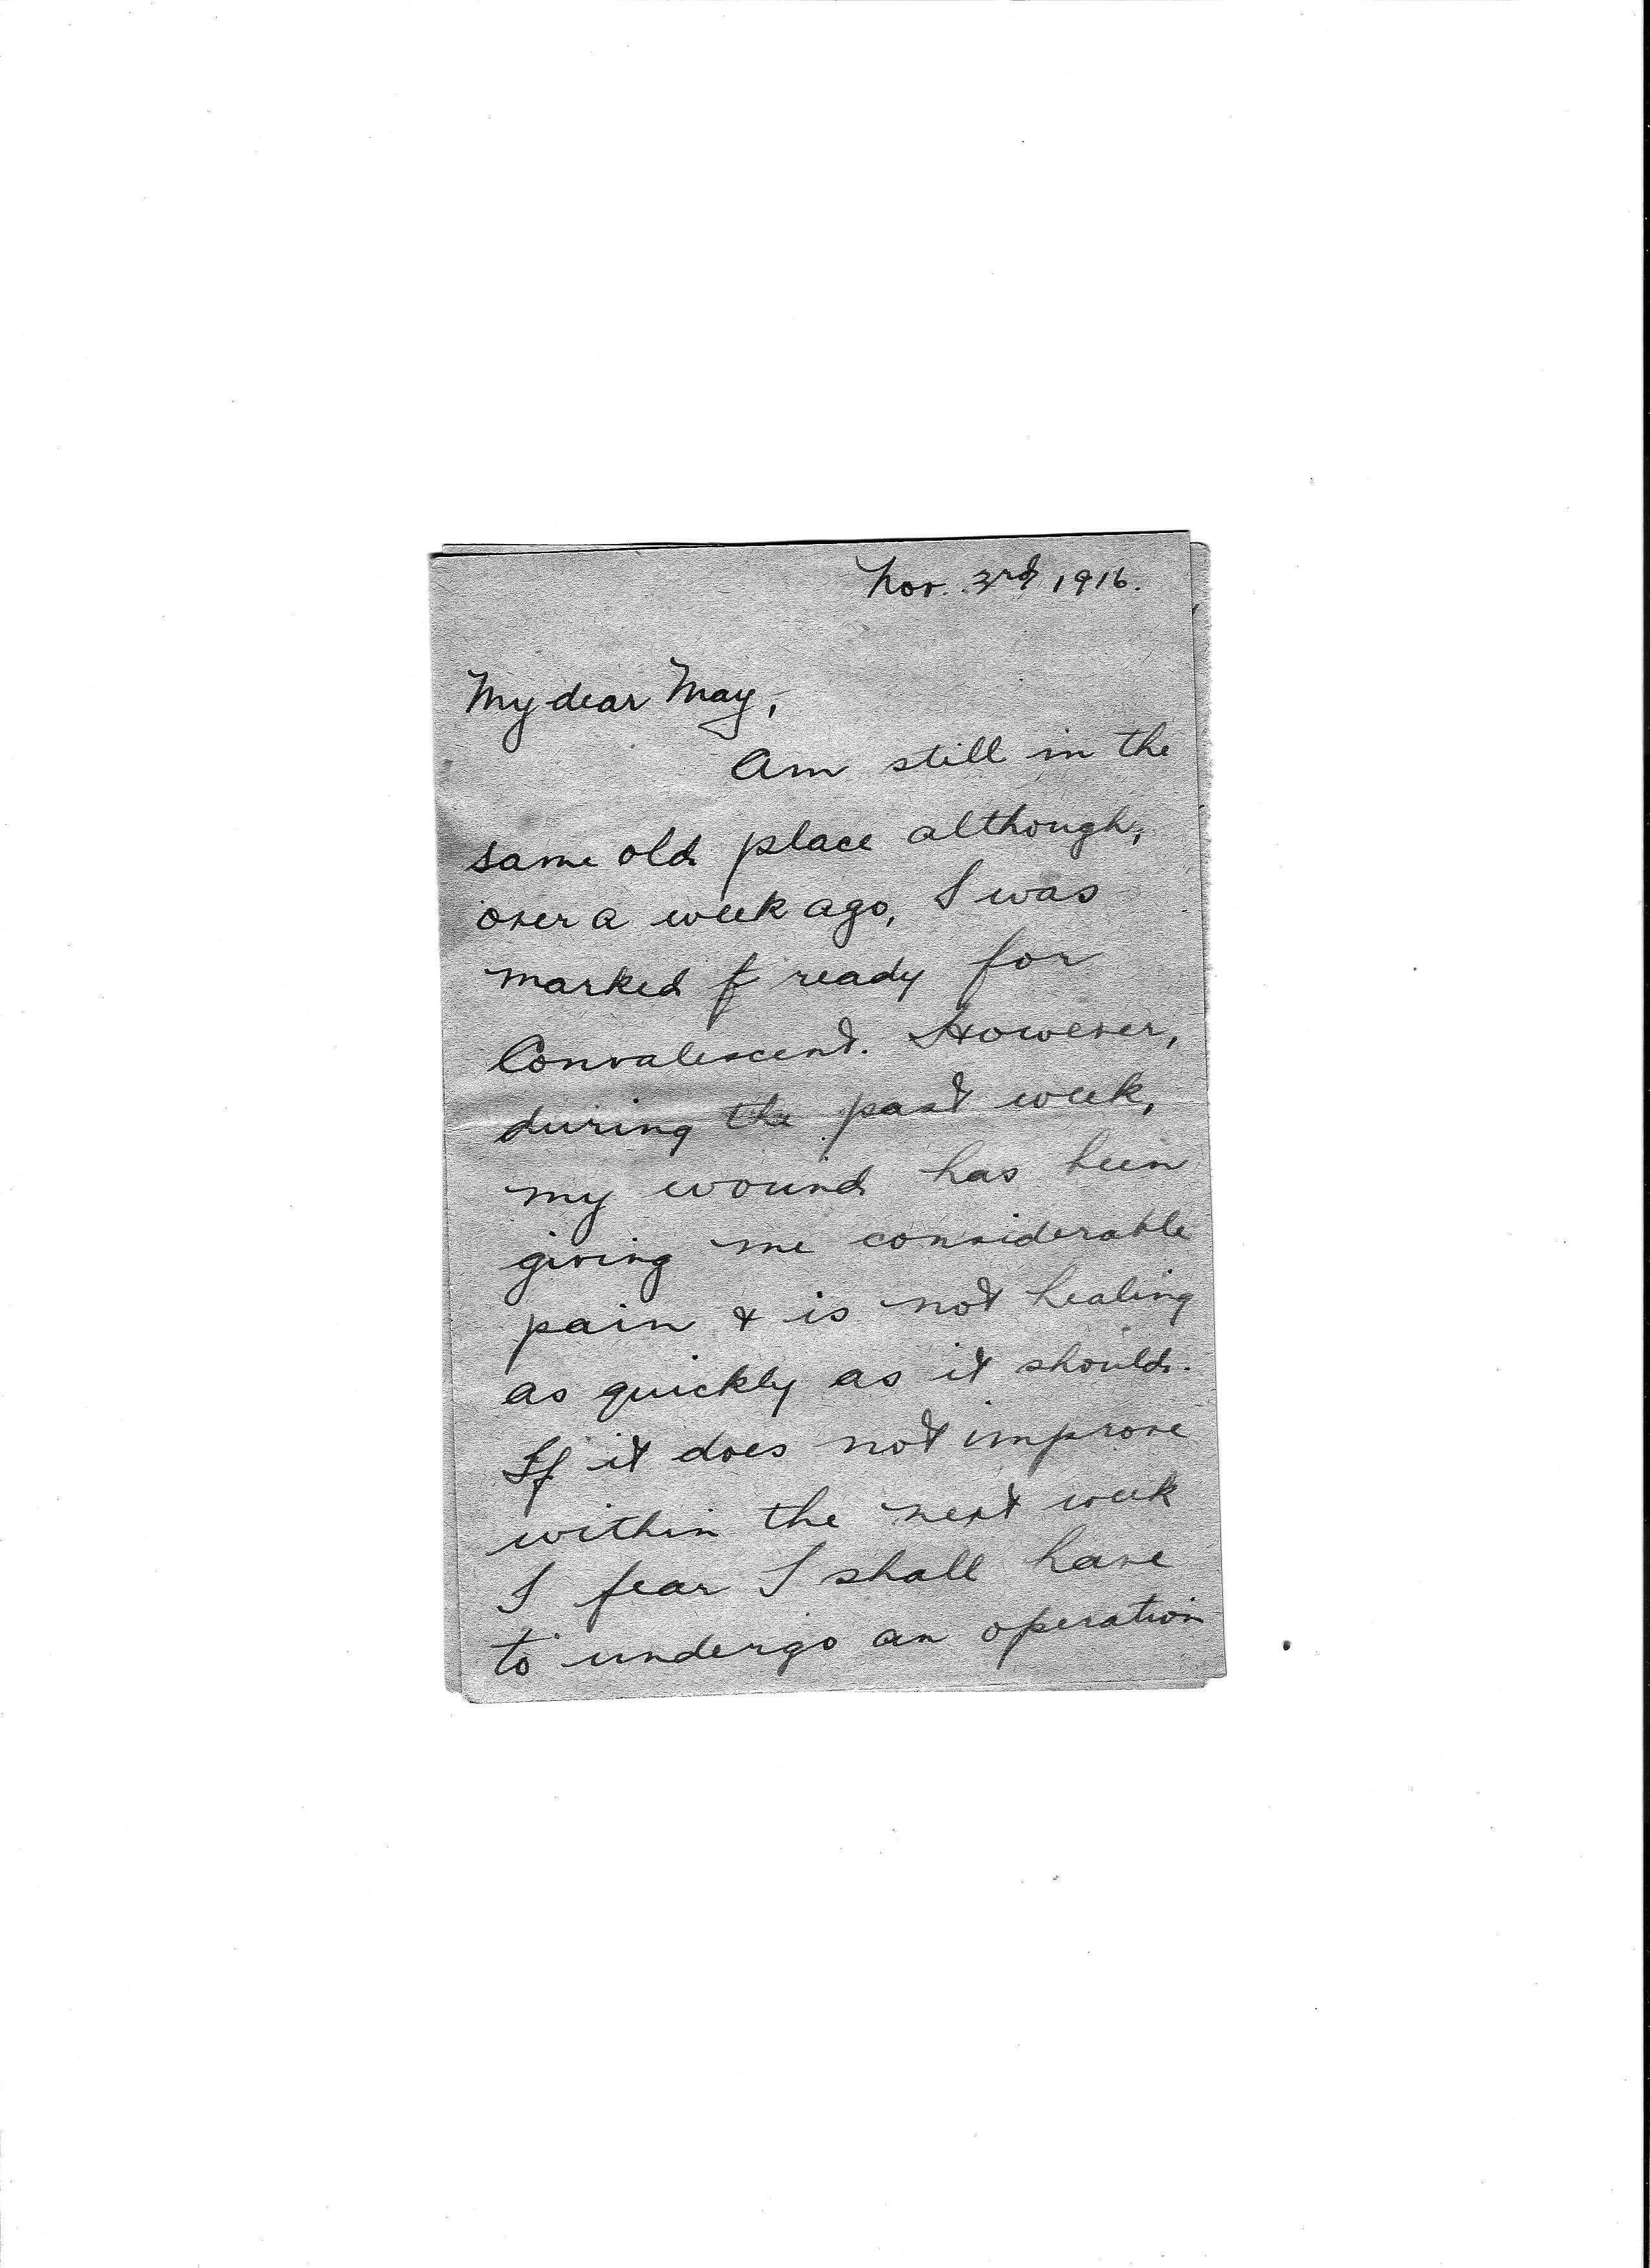 Nov. 3rd 1916.
My dear May,
Am still in the
same old place although,
over a week ago, I was
marked f ready for
Convalescent. However,
during the past week,
my wound has been
giving me considerable
pain & is not healing
as quickly as it should.
If it does not improve
within the next week
I fear I shall have
to undergo an operation